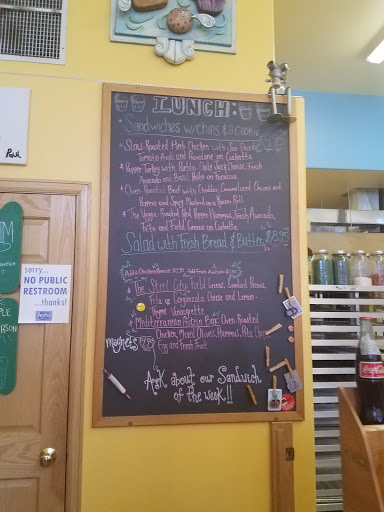 LUNCH:
Sandwiches w/chips & a cookie
Slow-Roasted Herb Chicken with Sun-Dried
Tomato Aioli and Provolone on Ciabatta
Pepper Turkey with Pueblo Chile Jack Cheese, Fresh
Avocado and Basil Pesto on Focaccia
Oven-Roasted Beef with Cheddar, Caramelized Onions and
Peppers and Spicy Mustard on a Hoagie Roll
The Veggie: Roasted Red Pepper Hummus, Fresh Avocado,
Feta and Field Greens on Ciabatta
Salad with Fresh Bread & Butter $8.95
Add Chicken Breast Add Fresh Avocado
The Steel City: Field Greens, Candied Pecans,
Feta or Gorgonzola Cheese and Lemon-
Thyme Vinaigrette
Mediterranean Protein Box: Oven-Roasted
Chicken, Mixed Olives, Hummus, Pita Chips,
Egg and Fresh Fruit
magnets
Ask about our Sandwich
of the week!!
sorry...
NO PUBLIC
RESTROOM
...thanks!